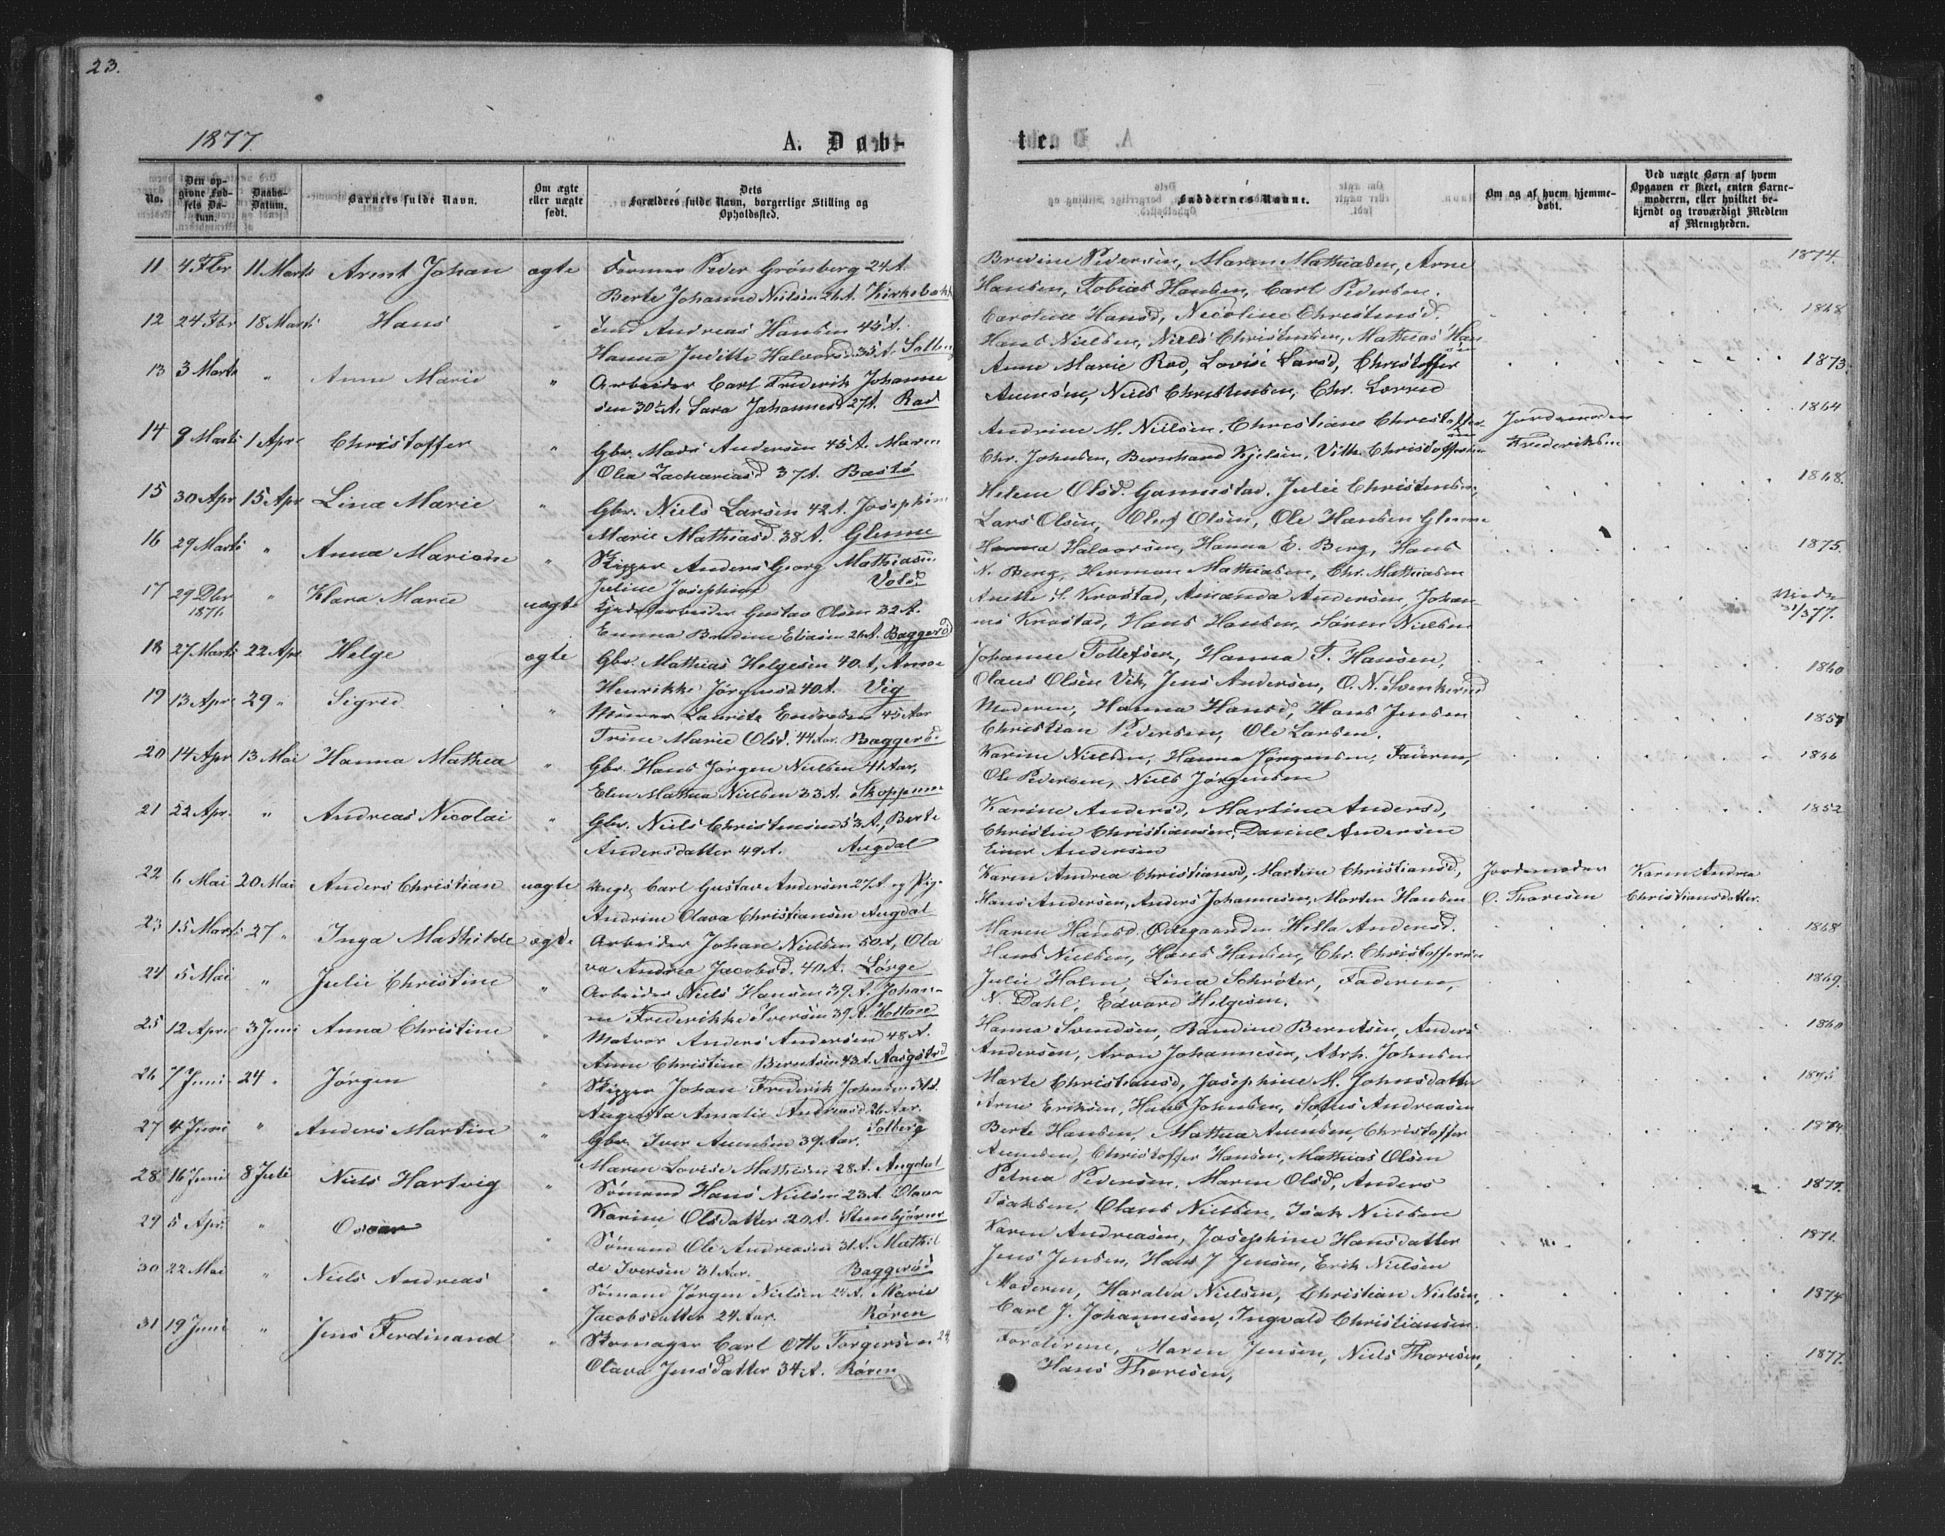 23.
1877.
A. Døb-
te.
No.
Den op-
givne Fød-
sels Da-
tum.
Daabs-
Datum.
Barnets fulde Navn.
Om ægte
eller uægte
født.
Dets
Forældres fulde Navn, borgerlige Stilling og
Opholdssted.
Faddernes Navne.
Om og af hvem hjemme-
døbt.
Ved uægte Børn af hvem
Opgaven er skeet, enten Barne-
moderen, eller hvilket be-
kjendt og troværdigt Medlem
af Menigheden.
11 4 Fbr 11 Marts Arent Johan ægte Former Peder Grønberg 24 A.
Berte Johanne Nielsen 26 A. Kirkebakk
Bredine Pedersen, Maren Mathiasen, Arne
Hansen, Tobias Hansen, Carl Pedersen. 1874.
12 24 Fbr 18 Marts Hans " Andreas Hansen 45 A.
Hanna Juditte Halvorsd 35 A. Solberg
Caroline Hansd, Nicoline Christensd.
Hans Nielsen, Niels Christensen, Mathias Han
sen 1868
13 3 Marts " Anne Marie " Arbeider Carl Frederik Johanne
sen 30½ A. Sara Johannesd 27 A. Rad
Anne Marie Rad, Lovise Larsd, Christoffer
Aunsøn, Niels Christensen, Chr. Lorend 1873.
14 9 Marts 1 Apr. Christoffer " Gbr. Mads Andersen 45 A. Maren
Olea Zachariasd 37 A. Bastø
Andrine M. Nielsen, Christiane Christoffer
sen
Chr. Johnsen, Bernhard Kjelsen, Vilh. Christoffersen
Jordemoder
Frederiksen 1864
15 30 Apr 15 Apr Lina Marie " Gbr. Niels Larsen 42 A. Josephine
Marie Mathiasd 38 A. Glenne
Helene Olsd. Gannestad. Julie Christensen,
Lars Olsen, Oluf Olsen, Ole Hansen Glenne 1868.
16 29 Marts " Anna Mariane " Skipper Anders Georg Mathiasen
Juline Josephine Vold
Hanna Halvorsen, Hanna E. Berg, Hans
N. Berg, Herman Mathiasen, Chr. Mathiasen 1875.
17 29 Dbr
1876. " Klara Marie uægte arbeider Gustav Olsen 22 A.
Emma Bredine Eliasen 26 A. Baggerød
Anette S. Krostad, Amanda Andersen, Johan
nes Krostad, Hans Hansen, Søren Nielsen
31/3 77.
18 27 Marts 22 Apr Helge ægte Gbr. Mathias Helgesen 40 A, Anne
Henrikke Jørgensd 40 A. Vig
Johanne Tollefsen, Hanna F. Hansen,
Olaus Olsen Vik, Jens Andersen, O. N. Svenkerud 1860
19 13 Apr. 29 " Sigrid " Murer Laurits Endresen 45 Aar
Trine Marie Olsd. 44 Aar. Baggerød
Moderen, Hanna Hansd, Hans Jensen
Christian Pedersen, Ole Larsen. 1857
20 14 Apr 13 Mai Hanna Mathea " Gbr. Hans Jørgen Nielsen 41 Aar,
Elen Mathea Nielsen 33 A. Skoppum
Karine Nielsen, Hanna Jørgensen, Faderen,
Ole Pedersen, Niels Jørgensen 1866
21 22 Apr. " Andreas Nicolai " Gbr. Niels Christensen 53 A, Berte
Andersdatter 49 A. Augdal
Karine Andersd, Martine Andersd,
Christin Christiansen, Daniel Andersen
Einar Andersen 1852
22 6 Mai 20 Mai Anders Christian uægte Carl Gustav Andersen 27 A og Pige
Andrine Olava Christiansen Augdal
Karen Andrea Christiansd, Martine Christiansd,
Hans Andersen, Anders Johannesen, Morten Hansen
Jordemoder
O. Thoresen
Karen Andrea
Christiansdatter.
23 15 Marts 27 " Inga Mathilde ægte Arbeider Johan Nielsen 50 A, Ola
va Andrea Jacobsd. 40 A. Lørge
Maren Hansd Ødegaarden Hilla Andersd.
Hans Nielsen, Hans Hansen, Chr. Christoffersen 1868
24 5 Mai " Julie Christine " Arbeider Niels Hansen 39 A. Johan
ne Frederikke Iversen 39 A. Holtane
Julie Holm, Lina Schrøter, Faderen,
N. Dahl, Edvard Helgesen. 1869.
25 12 Apr. 3 Juni Anna Christine " Matros Anders Andersen 48 A.
Anne Christine Berntsen 43 A. Aasgstrd
Hanna Svendsen, Randine Berntsen, Anders
Andersen, Aron Johannesen, Abrh. Johnsen 1860
26 7 Juni 24 " Jørgen " Skipper Johan Frederik Johnsen
Augusta Amalie Andreasd 26 Aar.
Solberg
Marte Christiansd, Josephine M. Johnsdatter
Arne Eriksen, Hans Johnsen, Sofus Andreasen 1875
27 4 Juni " Anders Martin " Gbr. Iver Auensen 39 Aar.
Maren Lovise Mathisen 28 A. Augdal
Berte Hansen, Mathea Auensen, Christoffer
Auensen, Christoffer Hansen, Mathias Olsen 1874
28 16 Juni 8 Juli Niels Hartvig " Sømand Hans Nielsen 23 A. Olava
Karine Olsdatter 20 A. Stensbjørnr
Petrea Pedersen, Maren Olsd, Anders
Isaksen, Olaus Nielsen, Isak Nielsen 1877.
29 5 Apr. " Oscar " Sømand Ole Andreasen 31 A. Mathil
de Iversen 31 Aar. Baggerød
Karen Andreasen, Josephine Hansdatter
Jens Jensen, Hans J Jensen, Erik Nielsen 1871.
30 22 Mai " Niels Andreas " Sømand Jørgen Nielsen 24 A. Marie
Jacobsdatter 24 Aar. Røren
Moderen, Haralda Nielsen, Christian Nielsen,
Carl J. Johannesen, Ingvald Christiansen. 1874
31 19 Juni " Jens Ferdinand " Skomager Carl Otto Torgersen 24
Olava Jensdatter 34 A. Røren
Forældrene, Maren Jensen, Niels Thoresen,
Hans Thoresen, 1877.